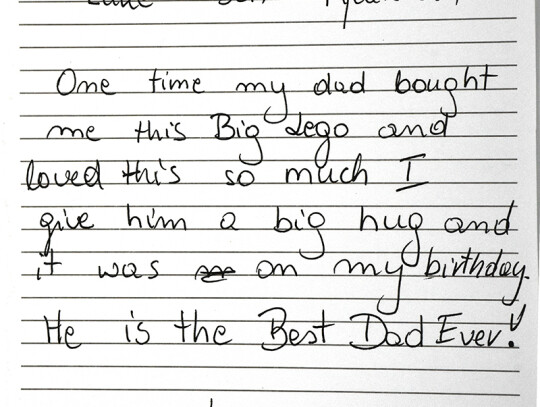 One time my dad bought
me this Big Lego and
loved this so much I
give him a big hug and
it was on my birthday.
He is the Best Dad Ever!